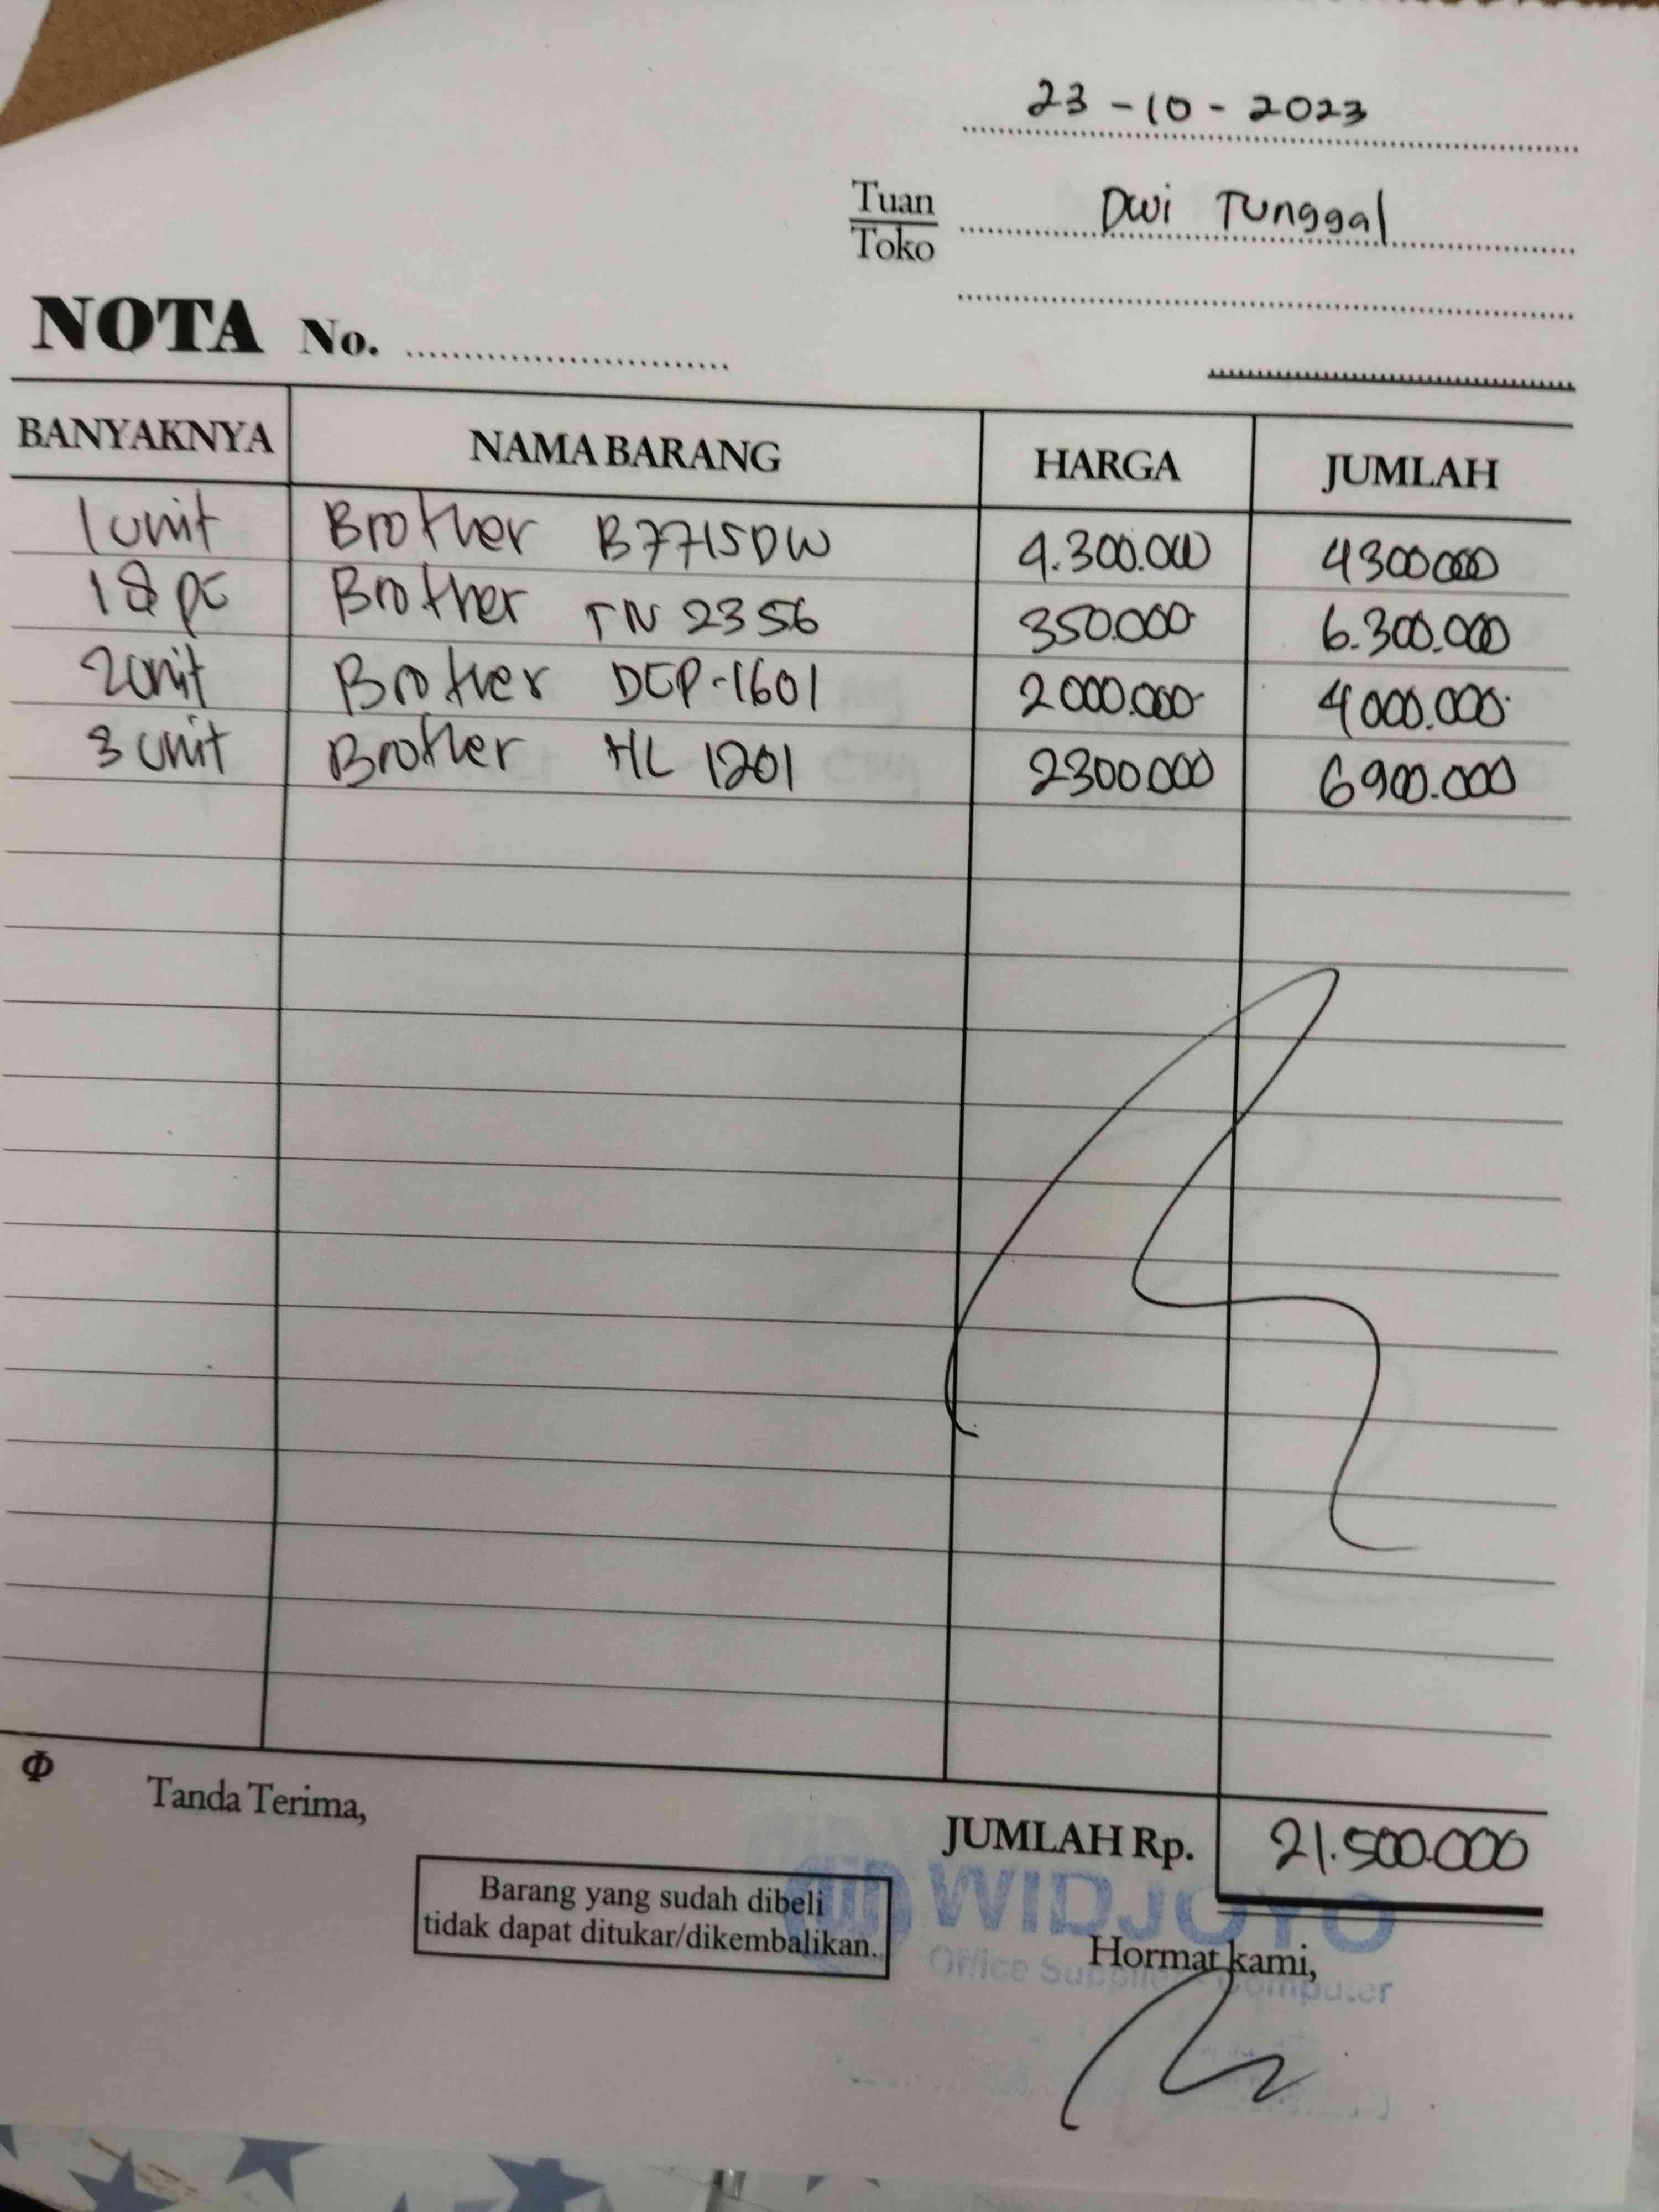 23-10-2023
Tuan
Toko
Dwi Tunggal
NOTA No.
BANYAKNYA NAMA BARANG HARGA JUMLAH
1 unit Brother B7715DW 4.300.000 4300000
18 pc Brother TN 2356 350.000 6.300.000
2 unit Brother DCP-1601 2000.000 4000.000
3 unit Brother HL 1201 2300.000 6900.000
Tanda Terima,
JUMLAH Rp. 21.500.000
Barang yang sudah dibeli
tidak dapat ditukar/dikembalikan.
WIDJOYO
Hormat kami,
Office Supplies Computer